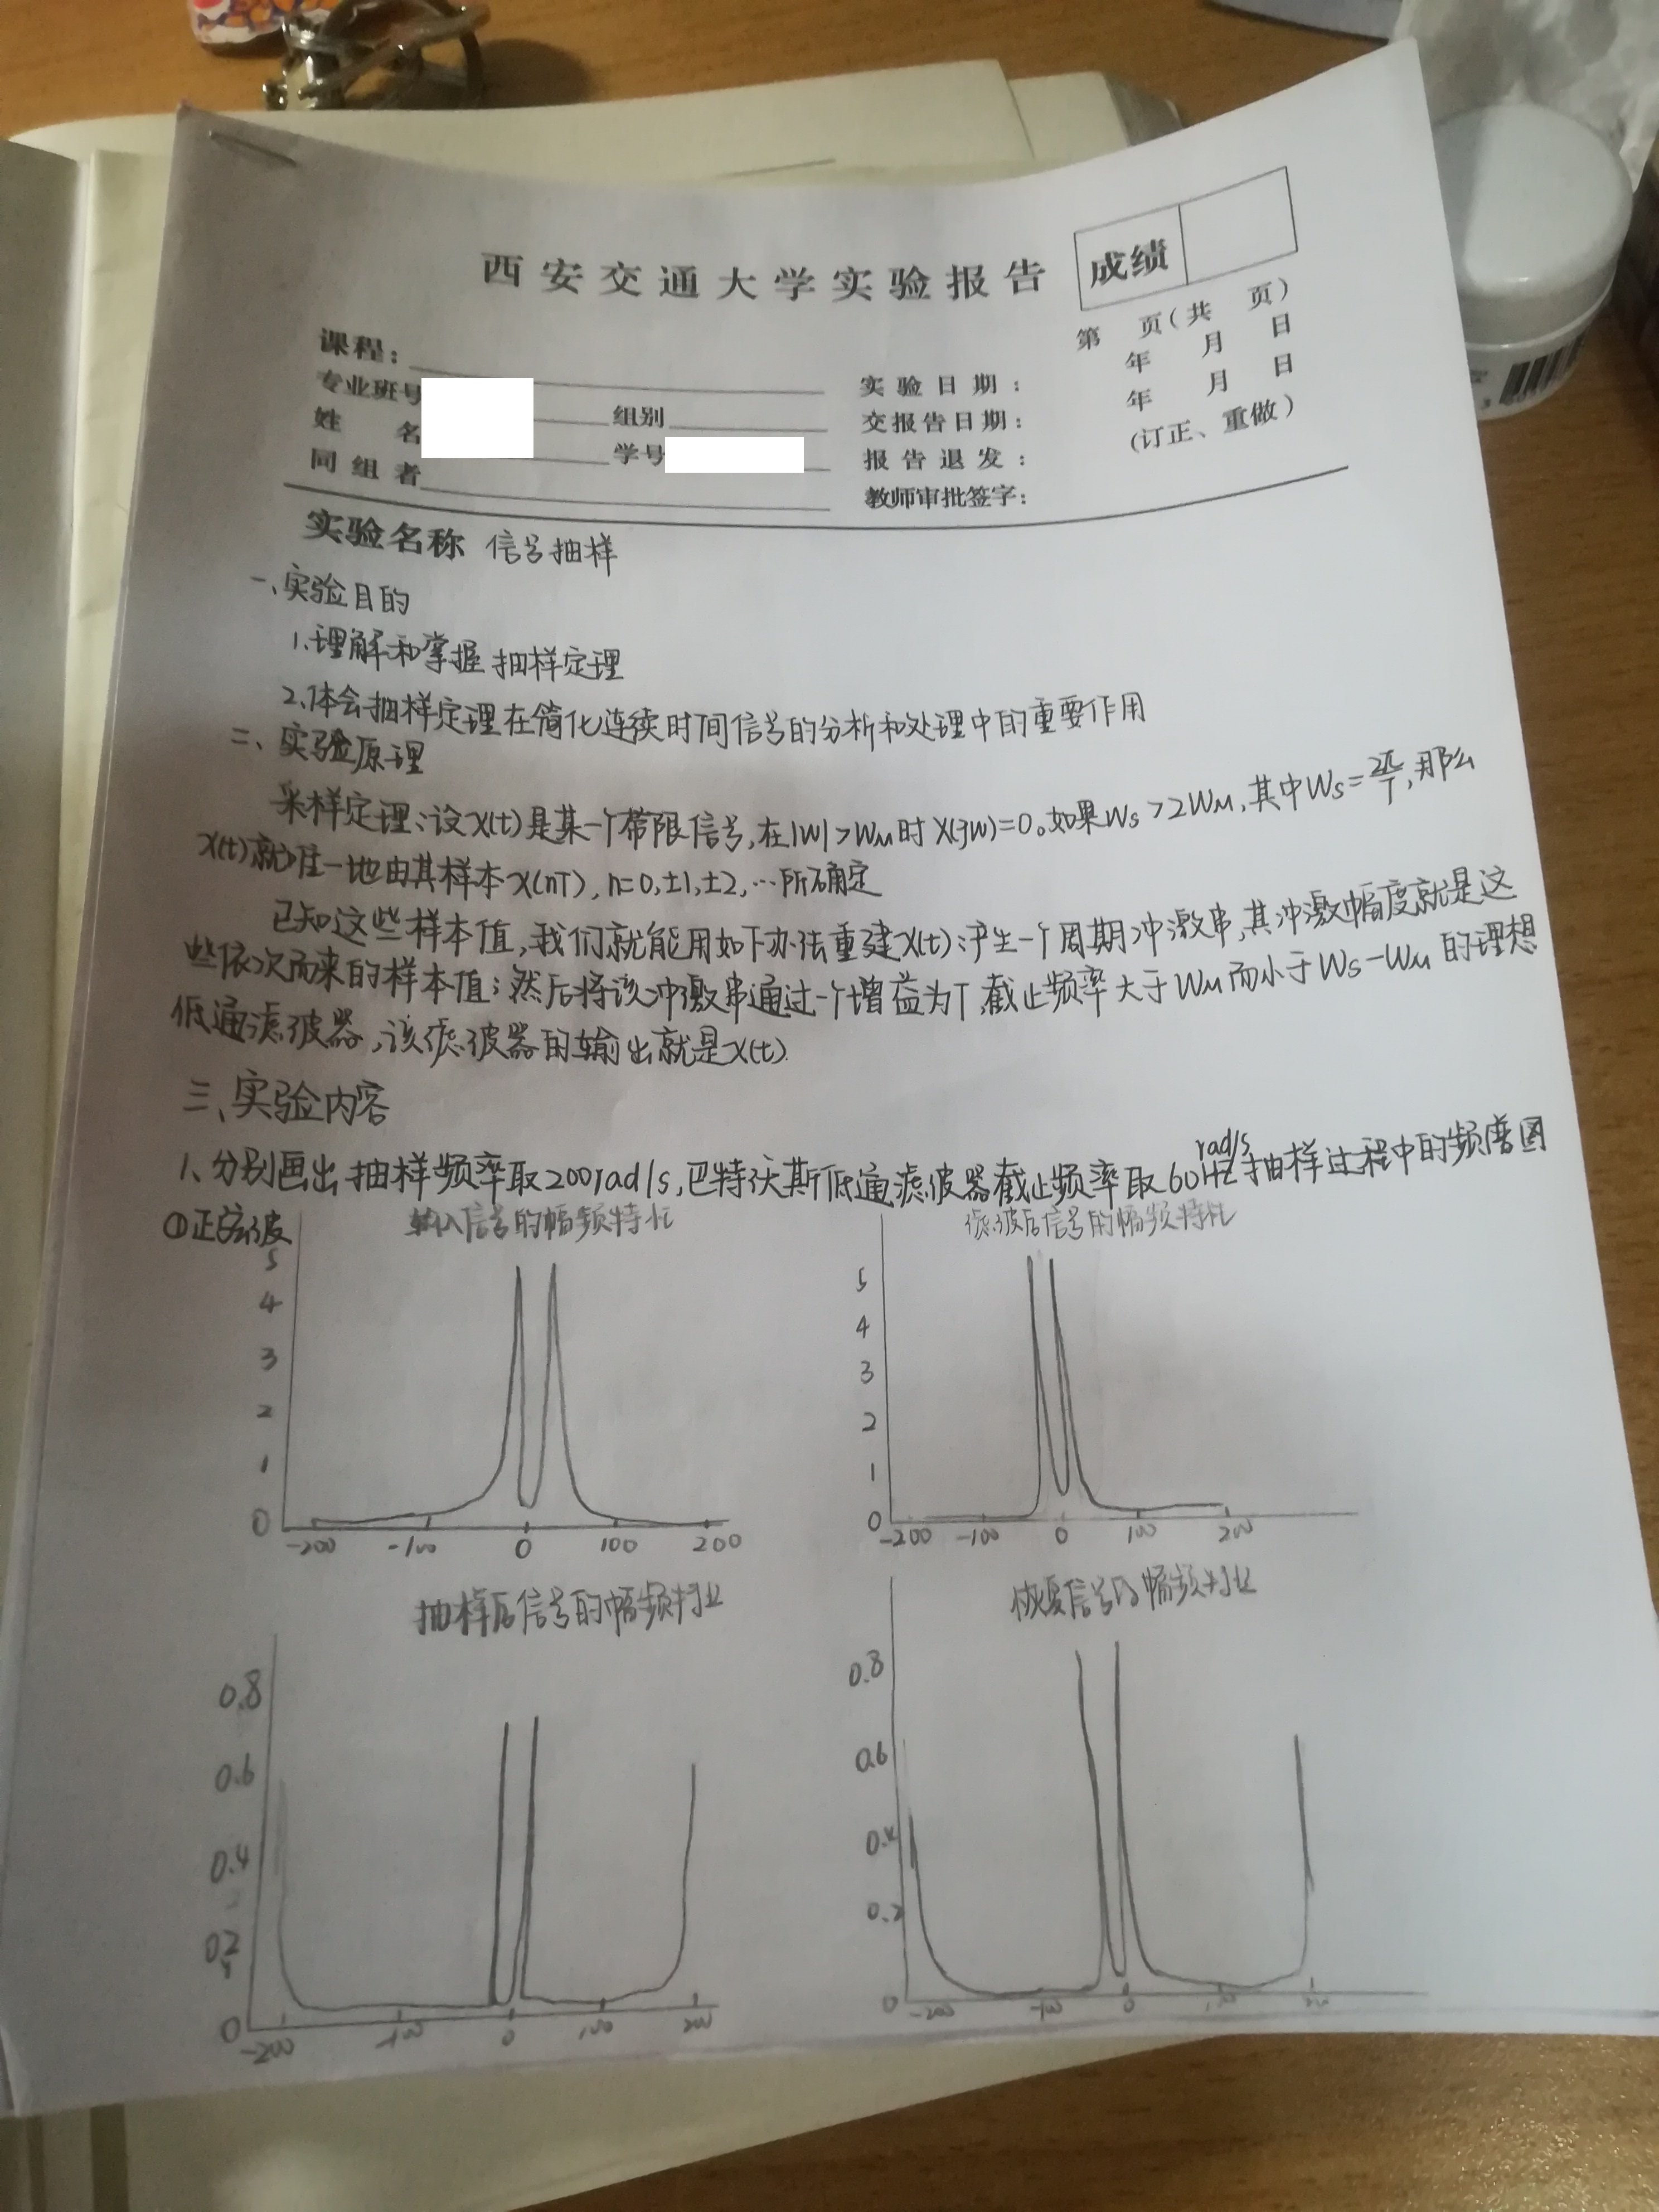 西安交通大学实验报告
成绩
第 页(共 页)
课程:
专业班号
组别
实验日期: 年 月 日
姓 名
学号
交报告日期: 年 月 日
同组者
报告退发: (订正、重做)
教师审批签字:
实验名称 信号抽样
一、实验目的
1.理解和掌握抽样定理
2.体会抽样定理在简化连续时间信号的分析和处理中的重要作用
二、实验原理
采样定理:设x(t)是某一个带限信号,在|W|>WM时X(jW)=0。如果Ws>2WM,其中Ws=2π/T,那么
x(t)就唯一地由其样本x(nT),n=0,±1,±2,…所确定
已知这些样本值,我们就能用如下办法重建x(t):产生一个周期冲激串,其冲激幅度就是这
些依次而来的样本值;然后将该冲激串通过一个增益为T,截止频率大于WM而小于Ws-WM的理想
低通滤波器,该滤波器的输出就是x(t).
三、实验内容
1、分别画出抽样频率取200rad/s,巴特沃斯低通滤波器截止频率取60Hz rad/s抽样过程中的频谱图
①正弦波
输入信号的幅频特性
5
4
3
2
1
0
-200 -100 0 100 200
滤波后信号的幅频特性
5
4
3
2
1
0
-200 -100 0 100 200
抽样后信号的幅频特性
0.8
0.6
0.4
0.2
0
-200 -100 0 100 200
恢复信号的幅频特性
0.8
0.6
0.4
0.2
0
-200 -100 0 100 200